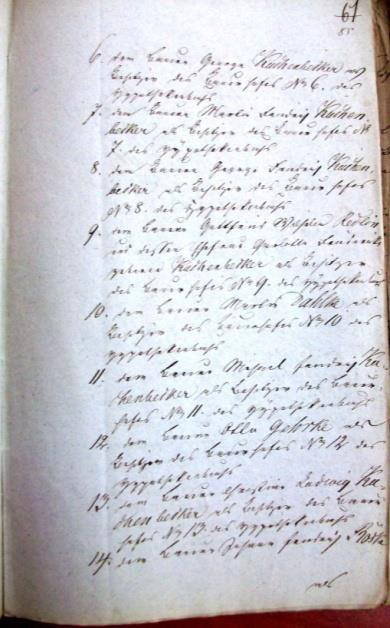 61
85
6. dem Bauer George Kuchenbecker als
Besitzer des Bauerhofes No 6. des
Hypothekenbuchs
7. dem Bauer Martin Friedrich Kuchen
becker als Besitzer des Bauerhofes No
7. des Hypothekenbuchs
8. dem Bauer George Friedrich Kuchen
becker als Besitzer des Bauerhofes
No 8. des Hypothekenbuchs
9. dem Bauer Gottfried Redlin
und dessen Ehefrau Charlotte
geborne Kuchenbecker als Besitzer
des Bauerhofes No 9. des Hypothekenbuchs
10. dem Bauer Martin Dahlke als
Besitzer des Bauerhofes No 10 des
Hypothekenbuchs
11. dem Bauer Michael Friedrich Ku
chenbecker als Besitzer des Bauer
hofes No 11. des Hypothekenbuchs
12. dem Bauer Otto Gehrke als
Besitzer des Bauerhofes No 12 des
Hypothekenbuchs
13. dem Bauer Christian Ludwig Ku
chenbecker als Besitzer des Bauer
hofes No 13. des Hypothekenbuchs
14. dem Bauer Johann Friedrich
als